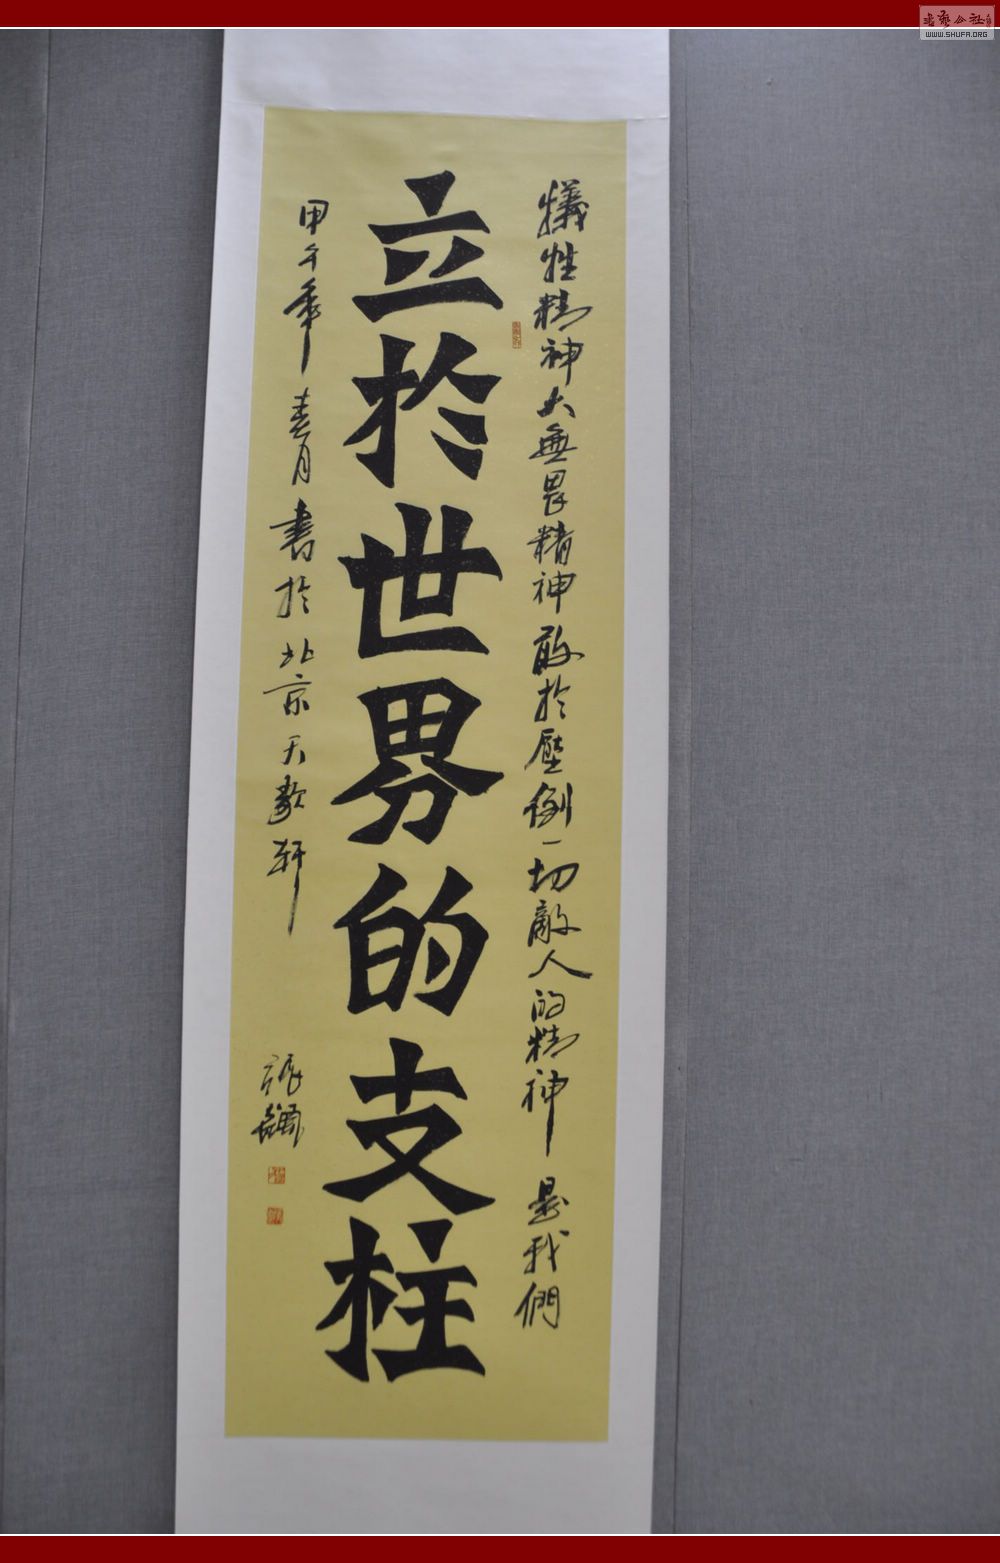 犠牲精神大無畏精神敢於壓倒一切敵人的精神是我們
立於世界的支柱
甲午年春月書於北京天歌軒
書藝公社
WWW.SHUFA.ORG